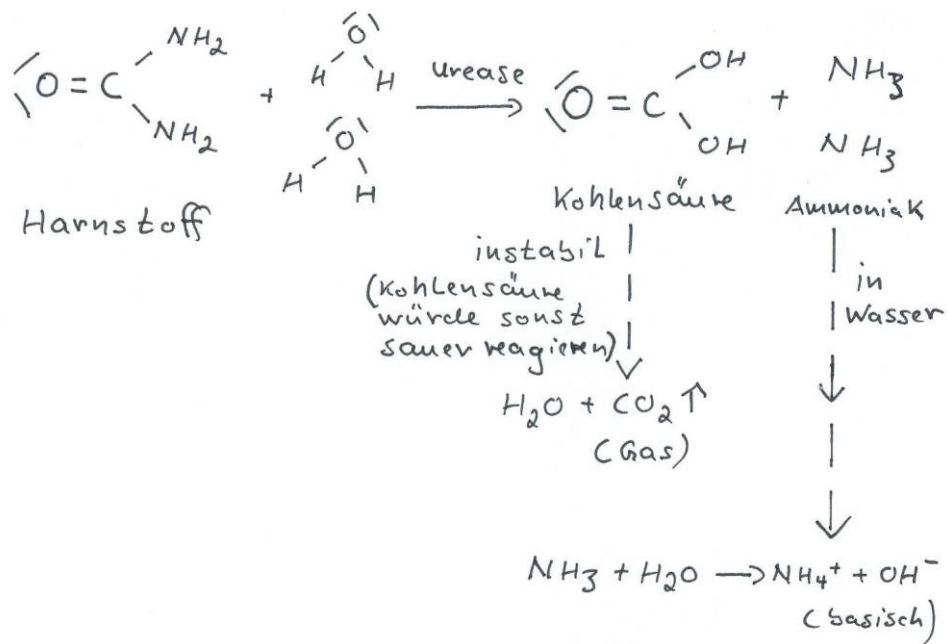 O=C NH₂ NH₂ + H O H H O H urease → O=C OH OH + NH₃ NH₃
Harnstoff
Kohlensäure
Ammoniak
instabil
(Kohlensäure
würde sonst
sauer reagieren)
in
Wasser
H₂O + CO₂↑
(Gas)
NH₃ + H₂O → NH₄⁺ + OH⁻
(basisch)